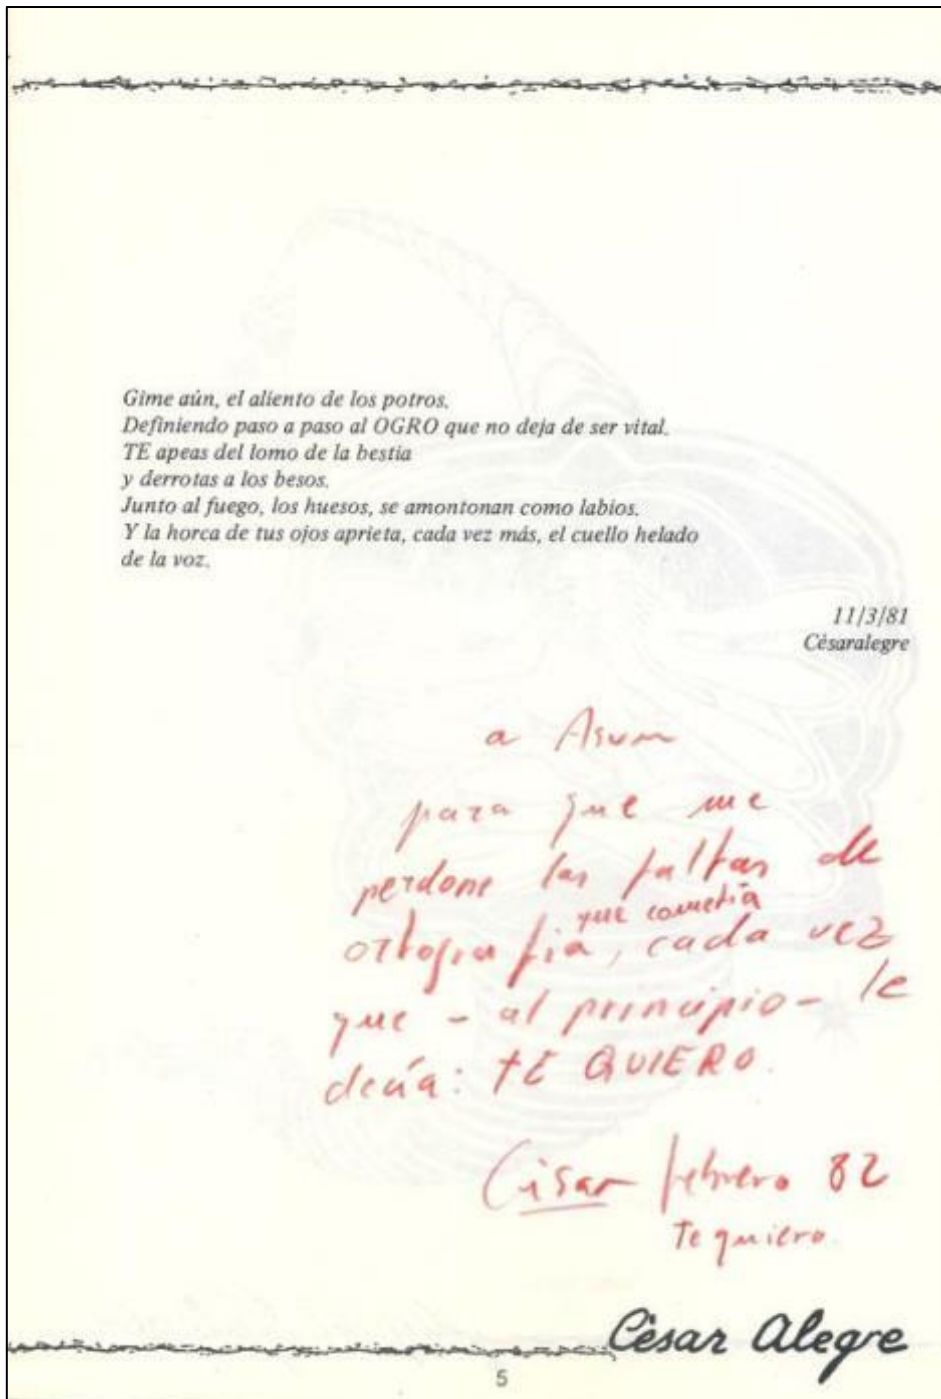 Gime aún, el aliento de los potros.
Definiendo paso a paso al OGRO que no deja de ser vital.
TE apeas del lomo de la bestia
y derrotas a los besos.
Junto al fuego, los huesos, se amontonan como labios.
Y la horca de tus ojos aprieta, cada vez más, el cuello helado
de la voz.
11/3/81
Césaralegre
a Asum
para que me
perdone las faltas de
que cometía
ortografía, cada vez
que - al principio - le
decía: TE QUIERO.
César febrero 82
Te quiero.
César Alegre
5